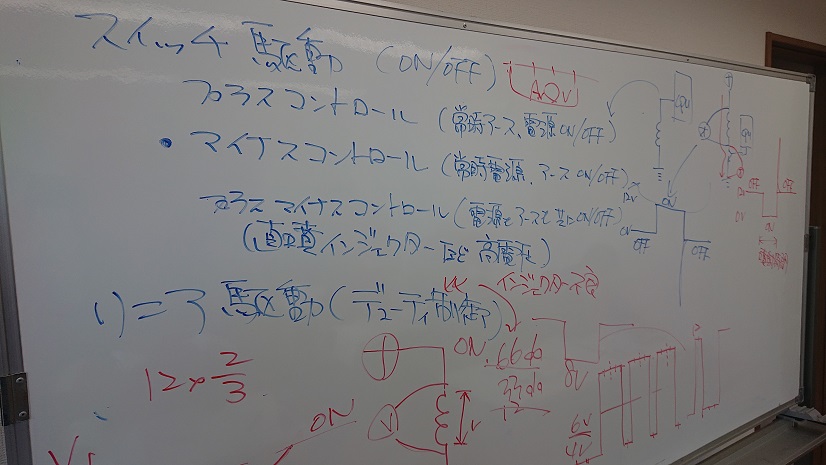 スイッチ駆動 (ON/OFF)
プラスコントロール (常時アース、電源ON/OFF)
・マイナスコントロール (常時電源、アースON/OFF)
プラスマイナスコントロール (電源もアースも共にON/OFF)
(直噴インジェクターなど高電圧)
リニア駆動 (デューティ制御)
インジェクター不良
12×2/3
ON
ON
V
V
8V
6V
4V
CPU
12V
0V
ON
OFF
OFF
OFF
OFF
12V
0V
ON